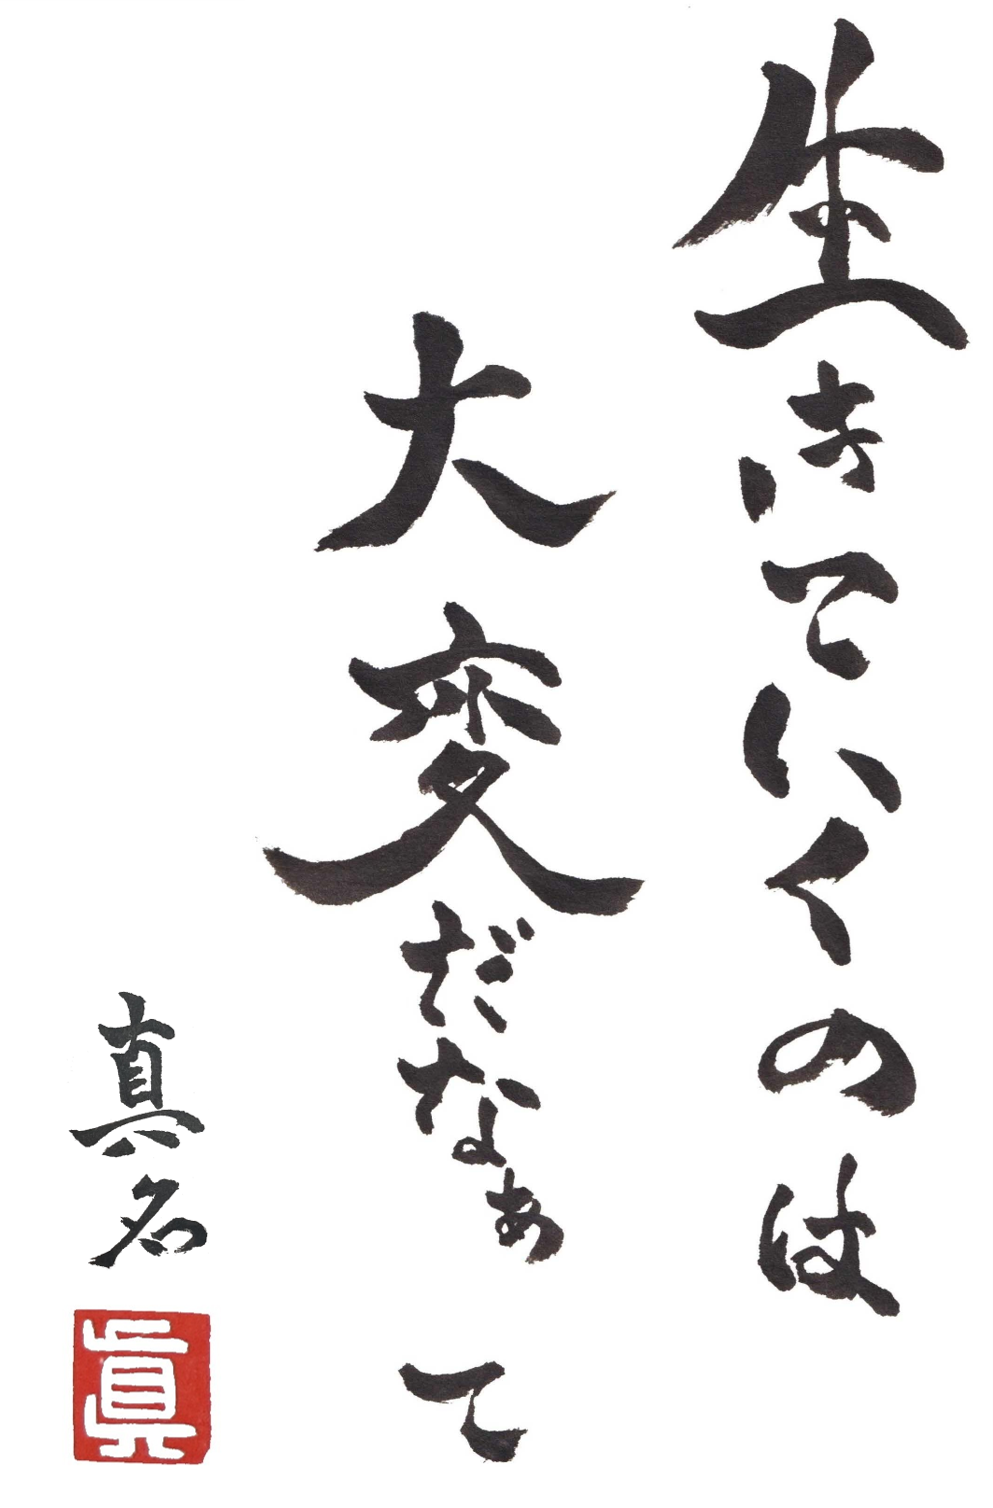 生きていくのは
大変だなぁ て
真名
眞